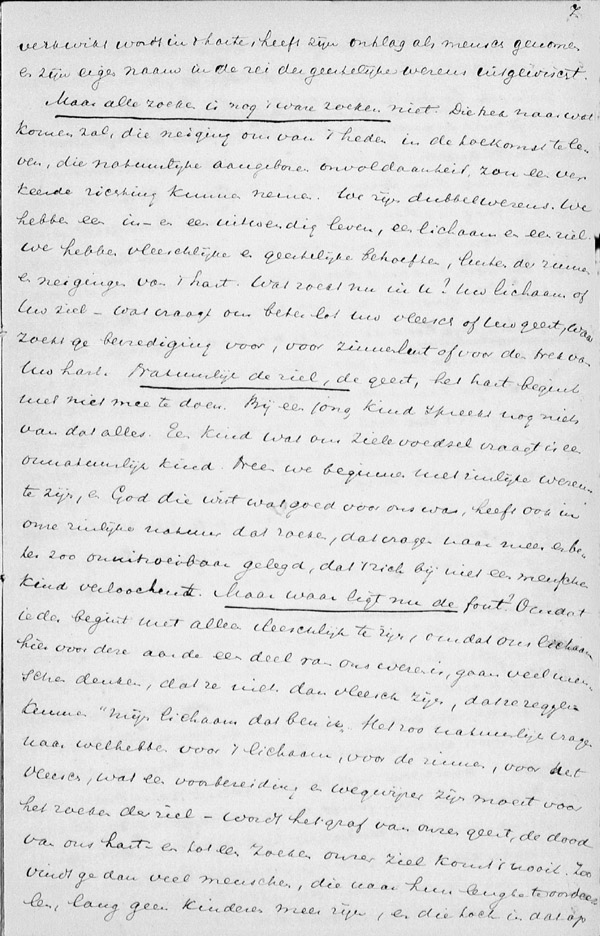 7.
verkwikt wordt in 't harte, heeft zijn ontslag als mensch genomen
en zijn eigen naam in de rei der geestelijke wezens uitgewischt.
Maar alle zoeken is nog 't ware zoeken niet. Die trek naar wat
komen zal, die neiging om van 't heden in de toekomst te le-
ven, die natuurlijke aangeboren onvoldaanheid, zou een ver-
keerde richting kunnen nemen. We zijn dubbelwezens. We
hebben een in- en een uitwendig leven, een lichaam en een ziel.
We hebben vleeschlijke en geestelijke behoeften, lusten der zinnen
en neigingen van 't hart. Wat zoekt nu in u? Uw lichaam of
Uw ziel - wat vraagt om beter lot uw vleesch of Uw geest, waar
zoekt ge bevrediging voor, voor zinnenlust of voor den trek van
Uw hart. Natuurlijk de ziel, de geest, het hart begint
met niet mee te doen. Bij een jong kind spreekt nog niets
van dat alles. Een kind wat om zielevoedsel vraagt is een
onnatuurlijk kind. Neen we beginnen met zinlijke wezens
te zijn, en God die wist wat goed voor ons was, heeft ook in
onze zinlijke natuur dat zoeken, dat vragen naar meer en be-
ter zoo onuitroeibaar gelegd, dat 't zich bij niet een menschen-
kind verloochent. Maar waar ligt nu de fout? Omdat
ieder begint met alleen vleeschlijk te zijn, omdat ons lichaam
hier voor deze aarde een deel van ons wezen is, gaan veel men-
schen denken, dat ze niets dan vleesch zijn, dat ze zeggen
kunnen "mijn lichaam dat ben ik. Het zoo natuurlijk vragen
naar welhebben voor 't lichaam, voor de zinnen, voor het
vleesch, wat een voorbereiding en wegwijzer zijn moest voor
het zoeken der ziel - wordt het graf van onzen geest, de dood
van ons hart en tot een zoeken onzer ziel komt 't nooit. Zoo
vindt ge dan veel menschen, die naar hun lengte te oordee-
len, lang geen kinderen meer zijn, en die toch in dat op